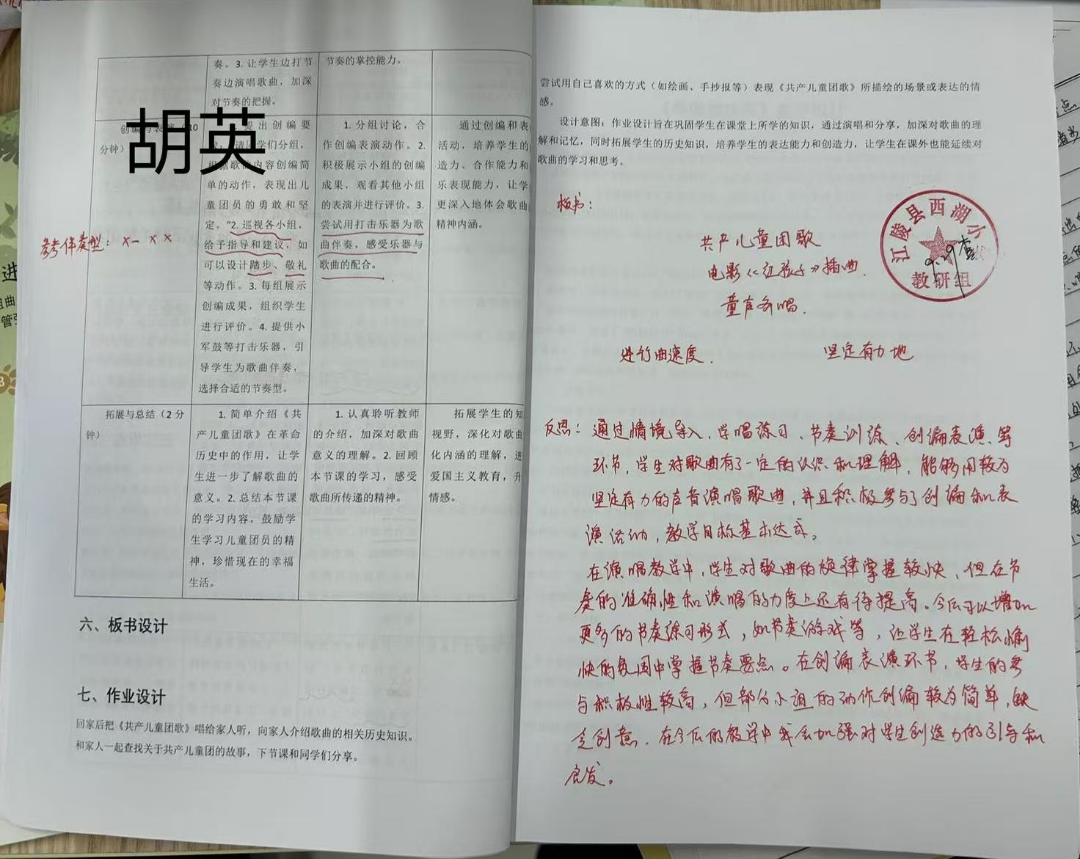 奏。3. 让学生边打节
奏边演唱歌曲，加深
对节奏的把握。
节奏的掌控能力。
胡英
创编与表
10
分钟）
出创编要
们分组，
内容创编简
单的动作，表现出儿
童团员的勇敢和坚
定。"2. 巡视各小组，
给予指导和建议，如
可以设计踏步、敬礼
等动作。3. 每组展示
创编成果，组织学生
进行评价。4. 提供小
军鼓等打击乐器，引
导学生为歌曲伴奏，
选择合适的节奏型。
1. 分组讨论，合
作创编表演动作。2.
积极展示小组的创编
成果，观看其他小组
的表演并进行评价。3.
尝试用打击乐器为歌
曲伴奏，感受乐器与
歌曲的配合。
通过创编和表
活动，培养学生的
造力、合作能力和
乐表现能力，让学
更深入地体会歌曲
精神内涵。
参考伴奏型：X— X X
拓展与总结（2 分
钟）
1. 简单介绍《共
产儿童团歌》在革命
历史中的作用，让学
生进一步了解歌曲的
意义。2. 总结本节课
的学习内容，鼓励学
生学习儿童团员的精
神，珍惜现在的幸福
生活。
1. 认真聆听教师
的介绍，加深对歌曲
意义的理解。2. 回顾
本节课的学习，感受
歌曲所传递的精神。
拓展学生的知
视野，深化对歌曲
化内涵的理解，进
爱国主义教育，升
情感。
六、板书设计
七、作业设计
回家后把《共产儿童团歌》唱给家人听，向家人介绍歌曲的相关历史知识。
和家人一起查找关于共产儿童团的故事，下节课和同学们分享。
尝试用自己喜欢的方式（如绘画、手抄报等）表现《共产儿童团歌》所描绘的场景或表达的情
感。
设计意图：作业设计旨在巩固学生在课堂上所学的知识，通过演唱和分享，加深对歌曲的理
解和记忆，同时拓展学生的历史知识，培养学生的表达能力和创造力，让学生在课外也能延续对
歌曲的学习和思考。
板书：
共产儿童团歌
电影《红孩子》插曲.
童声齐唱.
进行曲速度.
坚定有力地
江陵县西湖小
9.19查
教研组
反思：通过情境导入、学唱练习、节奏训练、创编表演、等
环节，学生对歌曲有了一定的认识和理解，能够用较为
坚定有力的声音演唱歌曲，并且积极参与了创编和表
演活动，教学目标基本达成。
在演唱教学中，学生对歌曲的旋律掌握较快，但在节
奏的准确性和演唱的力度上还有待提高。今后可以增加
更多的节奏练习形式，如节奏游戏等，让学生在轻松愉
快的氛围中掌握节奏要点。在创编表演环节，学生的参
与积极性较高，但部分小组的动作创编较为简单，缺
乏创意。在今后的教学中我会加强对学生创造力的引导和
启发。